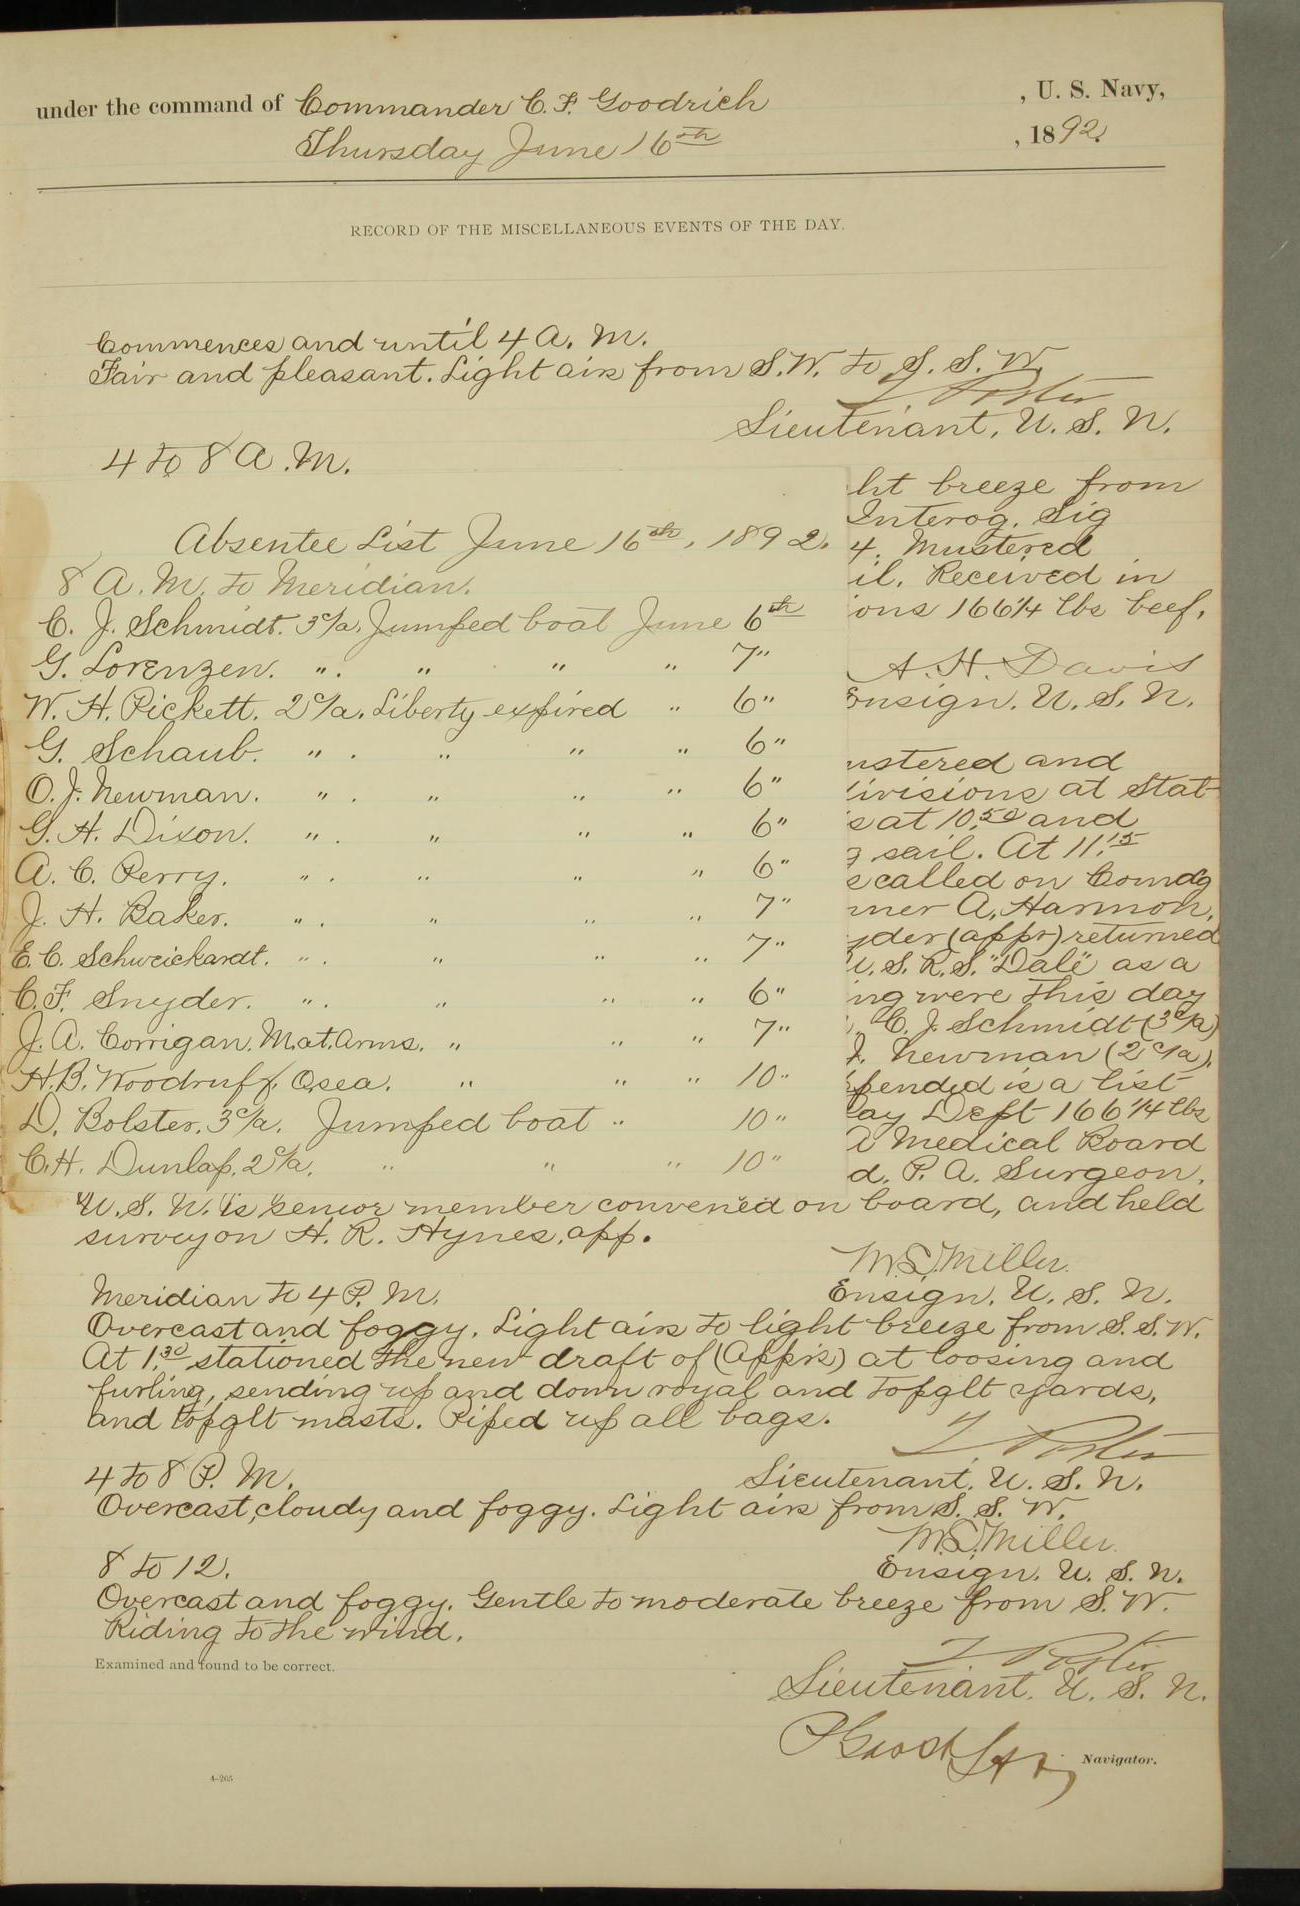 under the command of Commander C. F. Goodrich , U. S. Navy,
Thursday June 16th , 1892.
RECORD OF THE MISCELLANEOUS EVENTS OF THE DAY.
Commences and until 4 A. M.
Fair and pleasant. Light airs from S.W. to S. S. W.
Lieutenant, U. S. N.
4 to 8 A. M.
ht breeze from
Interog. Sig
4. Mustered
il. Received in
ions 166 1/4 lbs beef.
A. H. Davis
Ensign. U. S. N.
Absentee List June 16th, 1892.
8 A. M. to Meridian.
C. J. Schmidt. 3c/a. Jumped boat June 6th
G. Lorenzen. " . " " " 7"
W. H. Pickett. 2c/a. Liberty expired " 6"
G. Schaub. " . " " " 6"
O. J. Newman. " . " " " 6"
G. H. Dixon. " . " " " 6"
A. C. Perry. " . " " " 6"
J. H. Baker. " . " " " 7"
E. C. Schweickardt. " . " " " 7"
C. F. Snyder. " . " " " 6"
J. A. Corrigan. M.at.Arms. " " " 7"
H. B. Woodruff. O.sea. " " " 10"
D. Bolster. 3c/a. Jumped boat " 10"
C. H. Dunlap. 2c/a. " " " 10"
ustered and
divisions at Stat-
s at 10.50 and
g sail. At 11.15
s called on Comdg
ner A. Harmon,
yder (appr) returned
U. S. R. S. "Dale" as a
ing were this day
, C. J. Schmidt (3c/a)
J. Newman (2c/a).
pended is a list
Pay Dept 166 1/4 lbs
A Medical Board
d. P. A. Surgeon.
U. S. N. is senior member convened on board, and held
survey on H. R. Hynes. app.
M. S. Miller.
Ensign. U. S. N.
Meridian to 4 P. M.
Overcast and foggy. Light airs to light breeze from S. S. W.
At 1.30 stationed the new draft of (App's) at loosing and
furling, sending up and down royal and topglt yards,
and topglt masts. Piped up all bags.
Lieutenant. U. S. N.
4 to 8 P. M.
Overcast, cloudy and foggy. Light airs from S. S. W.
M. S. Miller.
Ensign. U. S. N.
8 to 12.
Overcast and foggy. Gentle to moderate breeze from S. W.
Riding to the wind.
Examined and found to be correct.
Lieutenant. U. S. N.
Navigator.
4–205